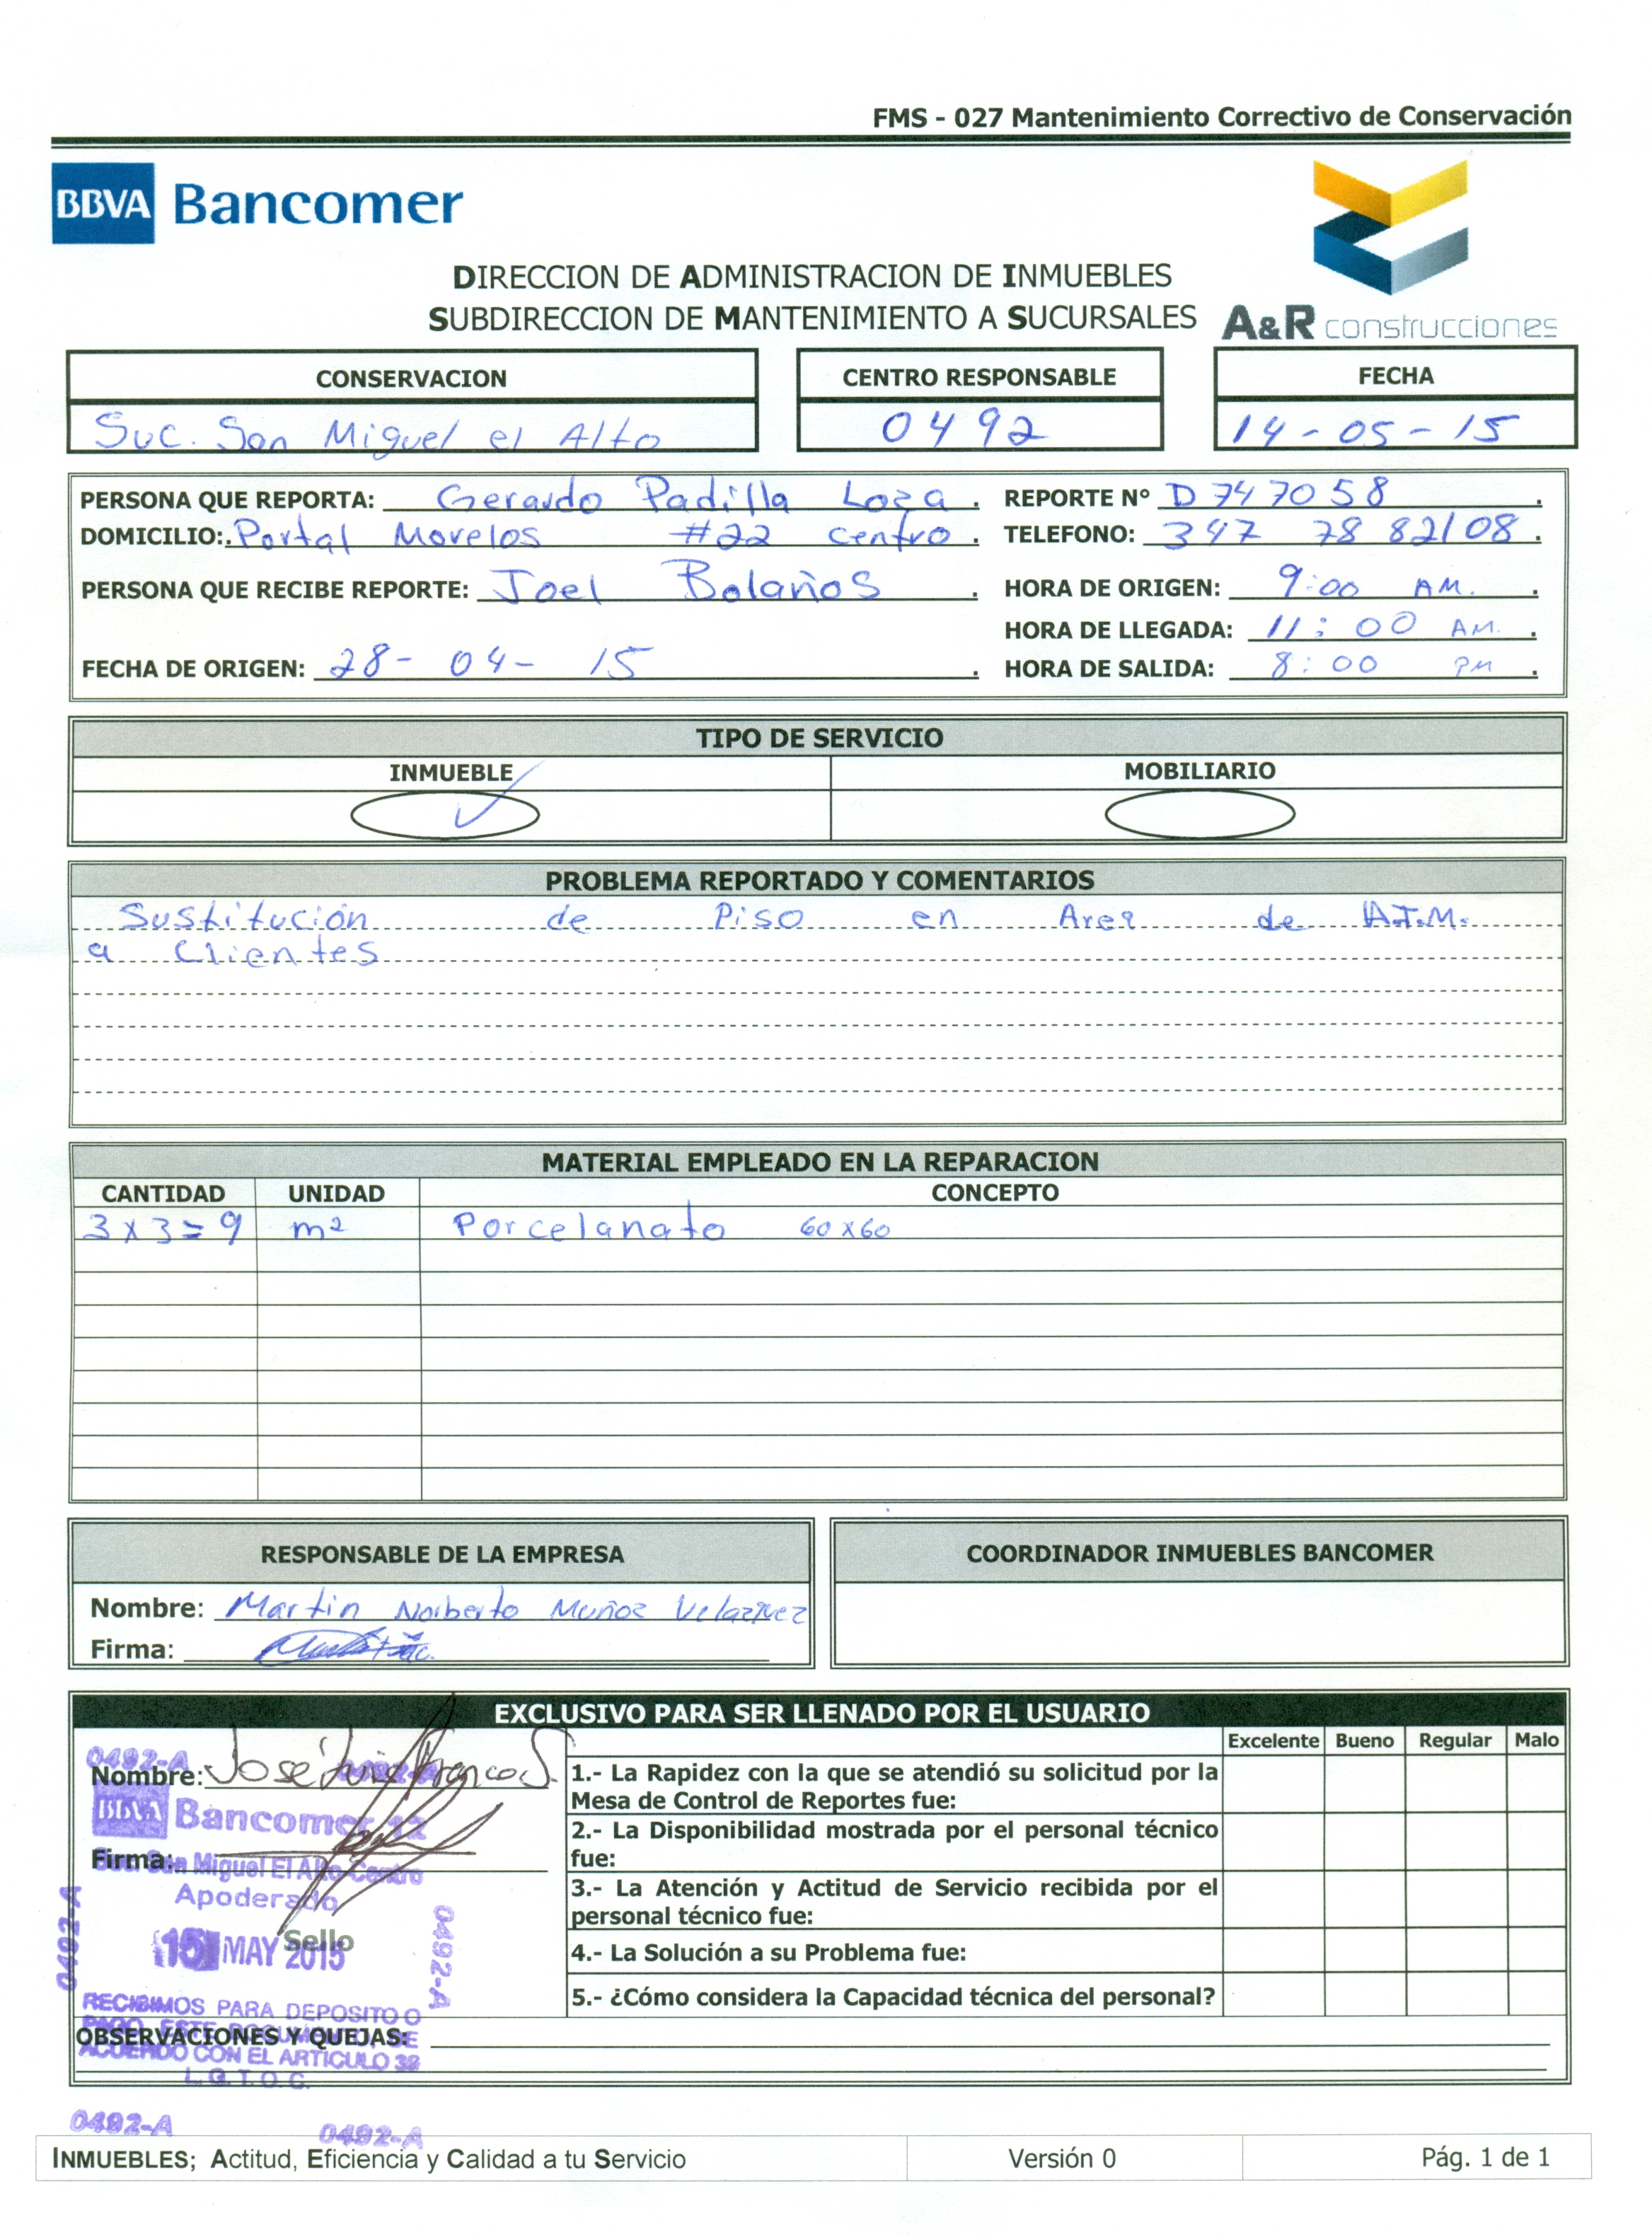 FMS - 027 Mantenimiento Correctivo de Conservación
BBVA Bancomer
DIRECCION DE ADMINISTRACION DE INMUEBLES
SUBDIRECCION DE MANTENIMIENTO A SUCURSALES
A&R construcciones
CONSERVACION
Suc. San Miguel el Alto
CENTRO RESPONSABLE
0492
FECHA
14-05-15
PERSONA QUE REPORTA: Gerardo Padilla Loza. REPORTE N° D747058.
DOMICILIO:. Portal Morelos #22 centro. TELEFONO: 347 78 82108.
PERSONA QUE RECIBE REPORTE: Joel Bolaños. HORA DE ORIGEN: 9:00 AM.
HORA DE LLEGADA: 11:00 AM.
FECHA DE ORIGEN: 28-04-15. HORA DE SALIDA: 8:00 PM.
TIPO DE SERVICIO
INMUEBLE MOBILIARIO
PROBLEMA REPORTADO Y COMENTARIOS
Sustitución de Piso en Area de A.T.M.
a Clientes
MATERIAL EMPLEADO EN LA REPARACION
CANTIDAD UNIDAD CONCEPTO
3x3=9 m² Porcelanato 60x60
RESPONSABLE DE LA EMPRESA
Nombre: Martin Norberto Muñoz Velazquez
Firma:
COORDINADOR INMUEBLES BANCOMER
EXCLUSIVO PARA SER LLENADO POR EL USUARIO
Excelente Bueno Regular Malo
0492-A
Nombre: José Luis Franco S.
BBVA Bancomer 12
Firma:
Suc. San Miguel El Alto Centro
Apoderado
Sello
15 MAY 2015
0492-A
0492-A
RECIBIMOS PARA DEPOSITO O
PAGO ESTE DOCUMENTO, DE
ACUERDO CON EL ARTICULO 39
L.G.T.O.C.
1.- La Rapidez con la que se atendió su solicitud por la
Mesa de Control de Reportes fue:
2.- La Disponibilidad mostrada por el personal técnico
fue:
3.- La Atención y Actitud de Servicio recibida por el
personal técnico fue:
4.- La Solución a su Problema fue:
5.- ¿Cómo considera la Capacidad técnica del personal?
OBSERVACIONES Y QUEJAS:
0492-A 0492-A
INMUEBLES; Actitud, Eficiencia y Calidad a tu Servicio
Versión 0
Pág. 1 de 1